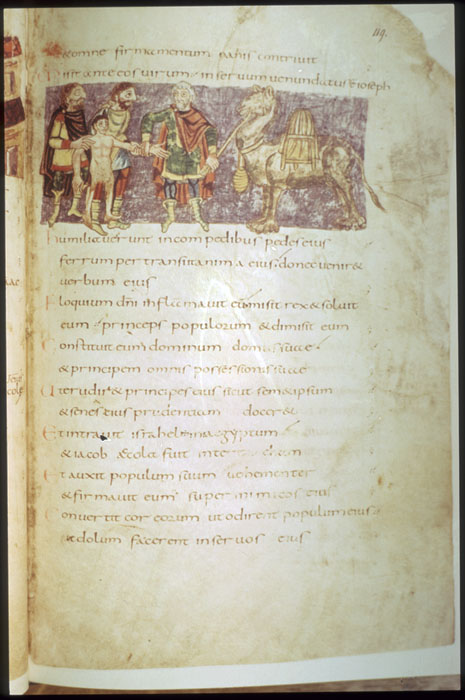 119.
& omne firmamentum panis contriuit
Misit ante eos uirum in seruum uenundatus e ioseph
humiliauerunt in compedibus pedes eius
ferrum per transiit anima eius. donec uenir&
uerbum eius
Eloquium dni inflammauit eum misit rex & soluit
eum princeps populorum & dimisit eum
Constituit eum dominum domus suae
& principem omnis possessionis suae
Ut erudir& principes eius sicut semetipsum
& senes eius prudentiam docer&
Et intrauit israhel in aegyptum
& iacob accola fuit in terra cham
Et auxit populum suum uehementer
& firmauit eum super inimicos eius
Conuertit cor eorum ut odirent populum eius
& dolum facerent in seruos eius